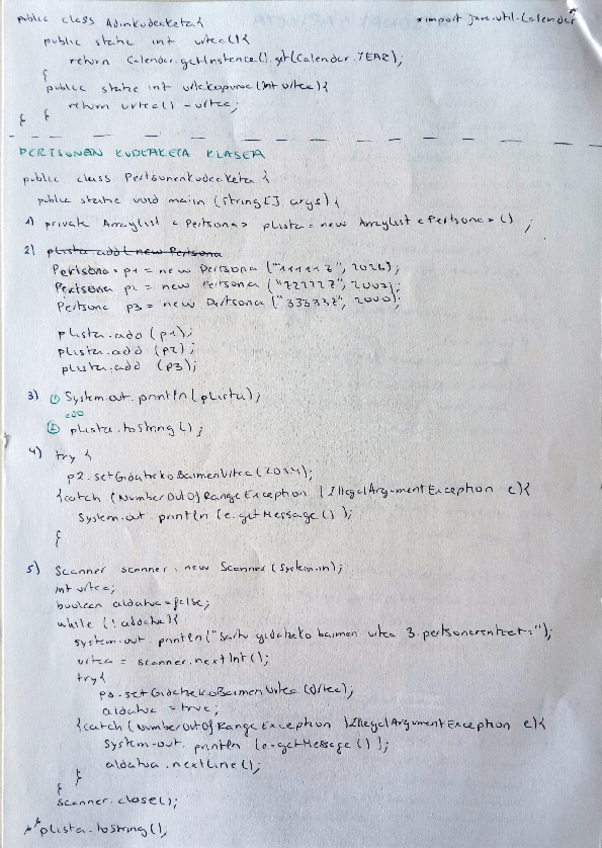 public class AdinKudeaketa {
* import java.util.Calendar
public static int urtea(){
return Calendar.getInstance().get(Calendar.YEAR);
}
public static int urteKopurua(int urtea){
return urtea() - urtea;
} }
PERTSONEN KUDEAKETA KLASEA
public class PertsonenKudeaketa {
public static void main (String[] args) {
1) private ArrayList <Pertsona> plista = new ArrayList <Pertsona> () ;
2) plista.add(new Pertsona
Pertsona p1 = new Pertsona ("111111Z", );
Pertsona p2 = new Pertsona ("22222Z", );
Pertsona p3 = new Pertsona ("33333Z", 2000);
plista.add (p1);
plista.add (p2);
plista.add (p3);
3) ① System.out.println(plista);
edo
② plista.toString();
4) try {
p2.setGidatekoBaimenUrtea(2014);
}catch (NumberOutOfRangeException | IllegalArgumentException e){
System.out.println(e.getMessage());
}
5) Scanner scanner = new Scanner(System.in);
int urtea;
boolean aldatua = false;
while (!aldatua){
system.out.println("Sartu gidatzeko baimen urtea 3. pertsonarentzat:");
urtea = scanner.nextInt();
try{
p3.setGidatekoBaimenUrtea(urtea);
aldatua = true;
}catch (NumberOutOfRangeException | IllegalArgumentException e){
System.out.println(e.getMessage());
aldatua.nextLine();
}
}
scanner.close();
plista.toString();